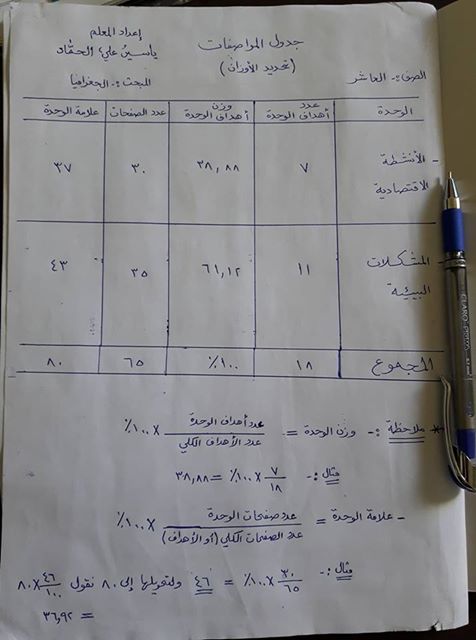 جدول المواصفات
(تحديد الأوزان)
إعداد المعلم
ياسين علي الحقاد
الصف :- العاشر
المبحث :- الجغرافيا
الوحدة | عدد أهداف الوحدة | وزن أهداف الوحدة | عدد الصفحات | علامة الوحدة
- الأنشطة الاقتصادية | ٧ | ٣٨,٨٨ | ٣٠ | ٣٧
- المشكلات البيئية | ١١ | ٦١,١٢ | ٣٥ | ٤٣
المجموع | ١٨ | ١٠٠٪ | ٦٥ | ٨٠
* ملاحظة :- وزن الوحدة = عدد أهداف الوحدة / عدد الأهداف الكلي × ١٠٠٪
مثال :- ٧ / ١٨ × ١٠٠٪ = ٣٨,٨٨
- علامة الوحدة = عدد صفحات الوحدة / عدد الصفحات الكلي (أو الأهداف) × ١٠٠٪
مثال :- ٣٠ / ٦٥ × ١٠٠٪ = ٤٦ ولتحويلها إلى ٨٠ نقول ٤٦ / ١٠٠ × ٨٠
= ٣٦,٩٢